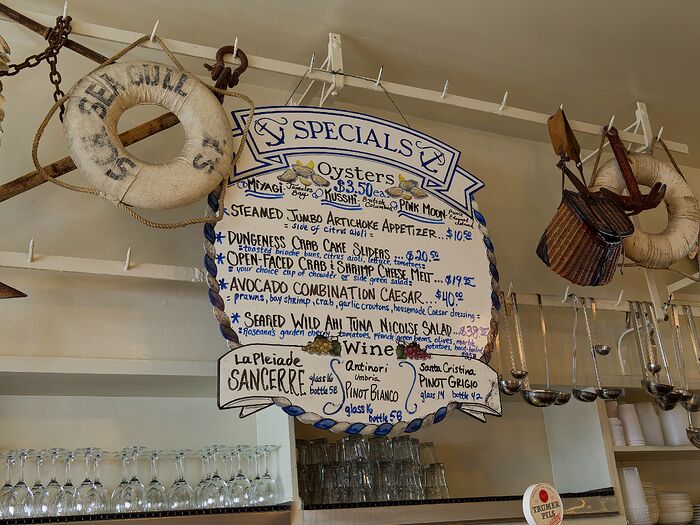 SEAGULL
SPECIALS
Oysters
$3.50ea
MIYAGI
Tomales
Bay
KUSSHI
British
Columbia
PINK MOON
Prince
Edward
Island
* STEAMED JUMBO ARTICHOKE APPETIZER... $10.50
= side of citrus aioli =
* DUNGENESS CRAB CAKE SLIDERS... $20.50
= toasted brioche buns, citrus aioli, lettuce, tomatoes =
* OPEN-FACED CRAB & SHRIMP CHEESE MELT... $19.75
= your choice cup of chowder or side green salad =
* AVOCADO COMBINATION CAESAR... $40.00
= prawns, bay shrimp, crab, garlic croutons, housemade Caesar dressing =
* SEARED WILD AHI TUNA NICOISE SALAD...
= Roseann's garden cherry tomatoes, French green beans, olives,
potatoes, hard-boiled
Wine
La Pleiade
SANCERRE
glass 16
bottle 58
Antinori
Umbria
PINOT BIANCO
glass 16
bottle 58
Santa Cristina
PINOT GRIGIO
glass 14 bottle 42
TRUMER
PILS